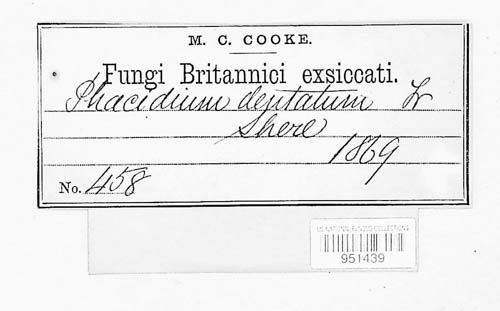 M. C. COOKE.
Fungi Britannici exsiccati.
Phacidium dentatum Fr
Shere
1869
No. 458
US NATIONAL FUNGUS COLLECTIONS
951439